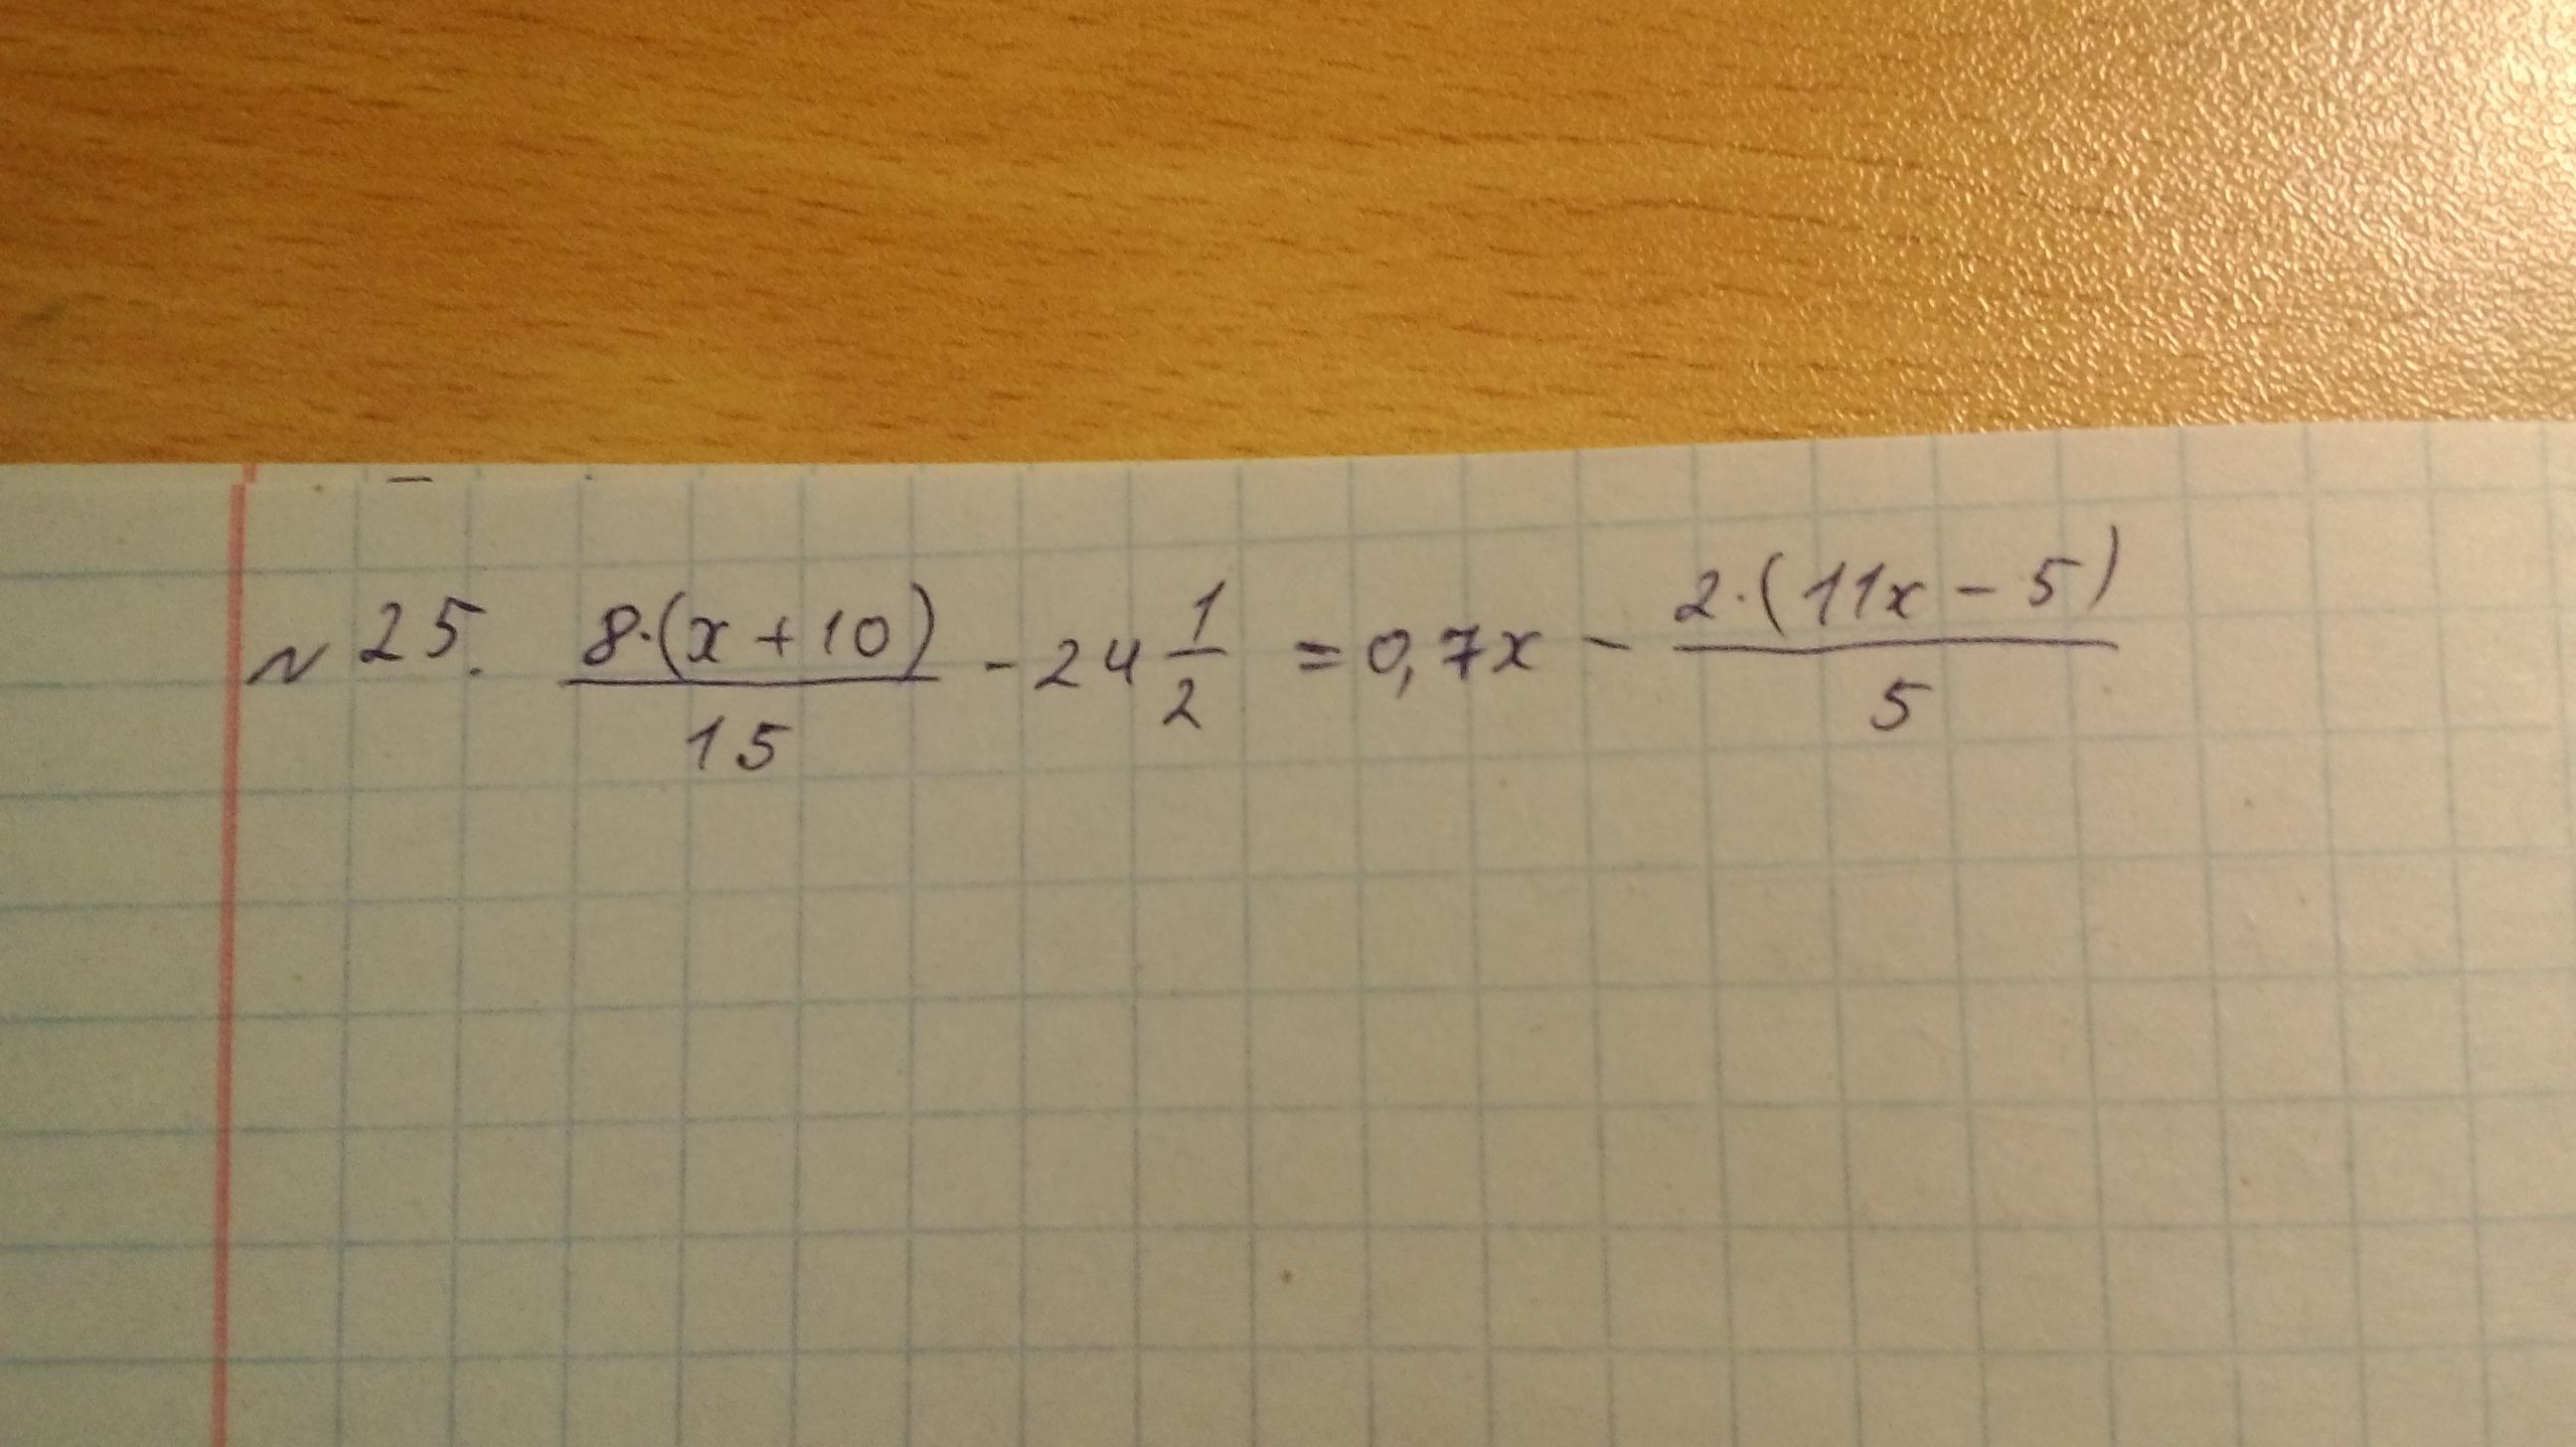 N 25. \frac{8·(x+10)}{15} - 24 \frac{1}{2} = 0,7x - \frac{2·(11x-5)}{5}